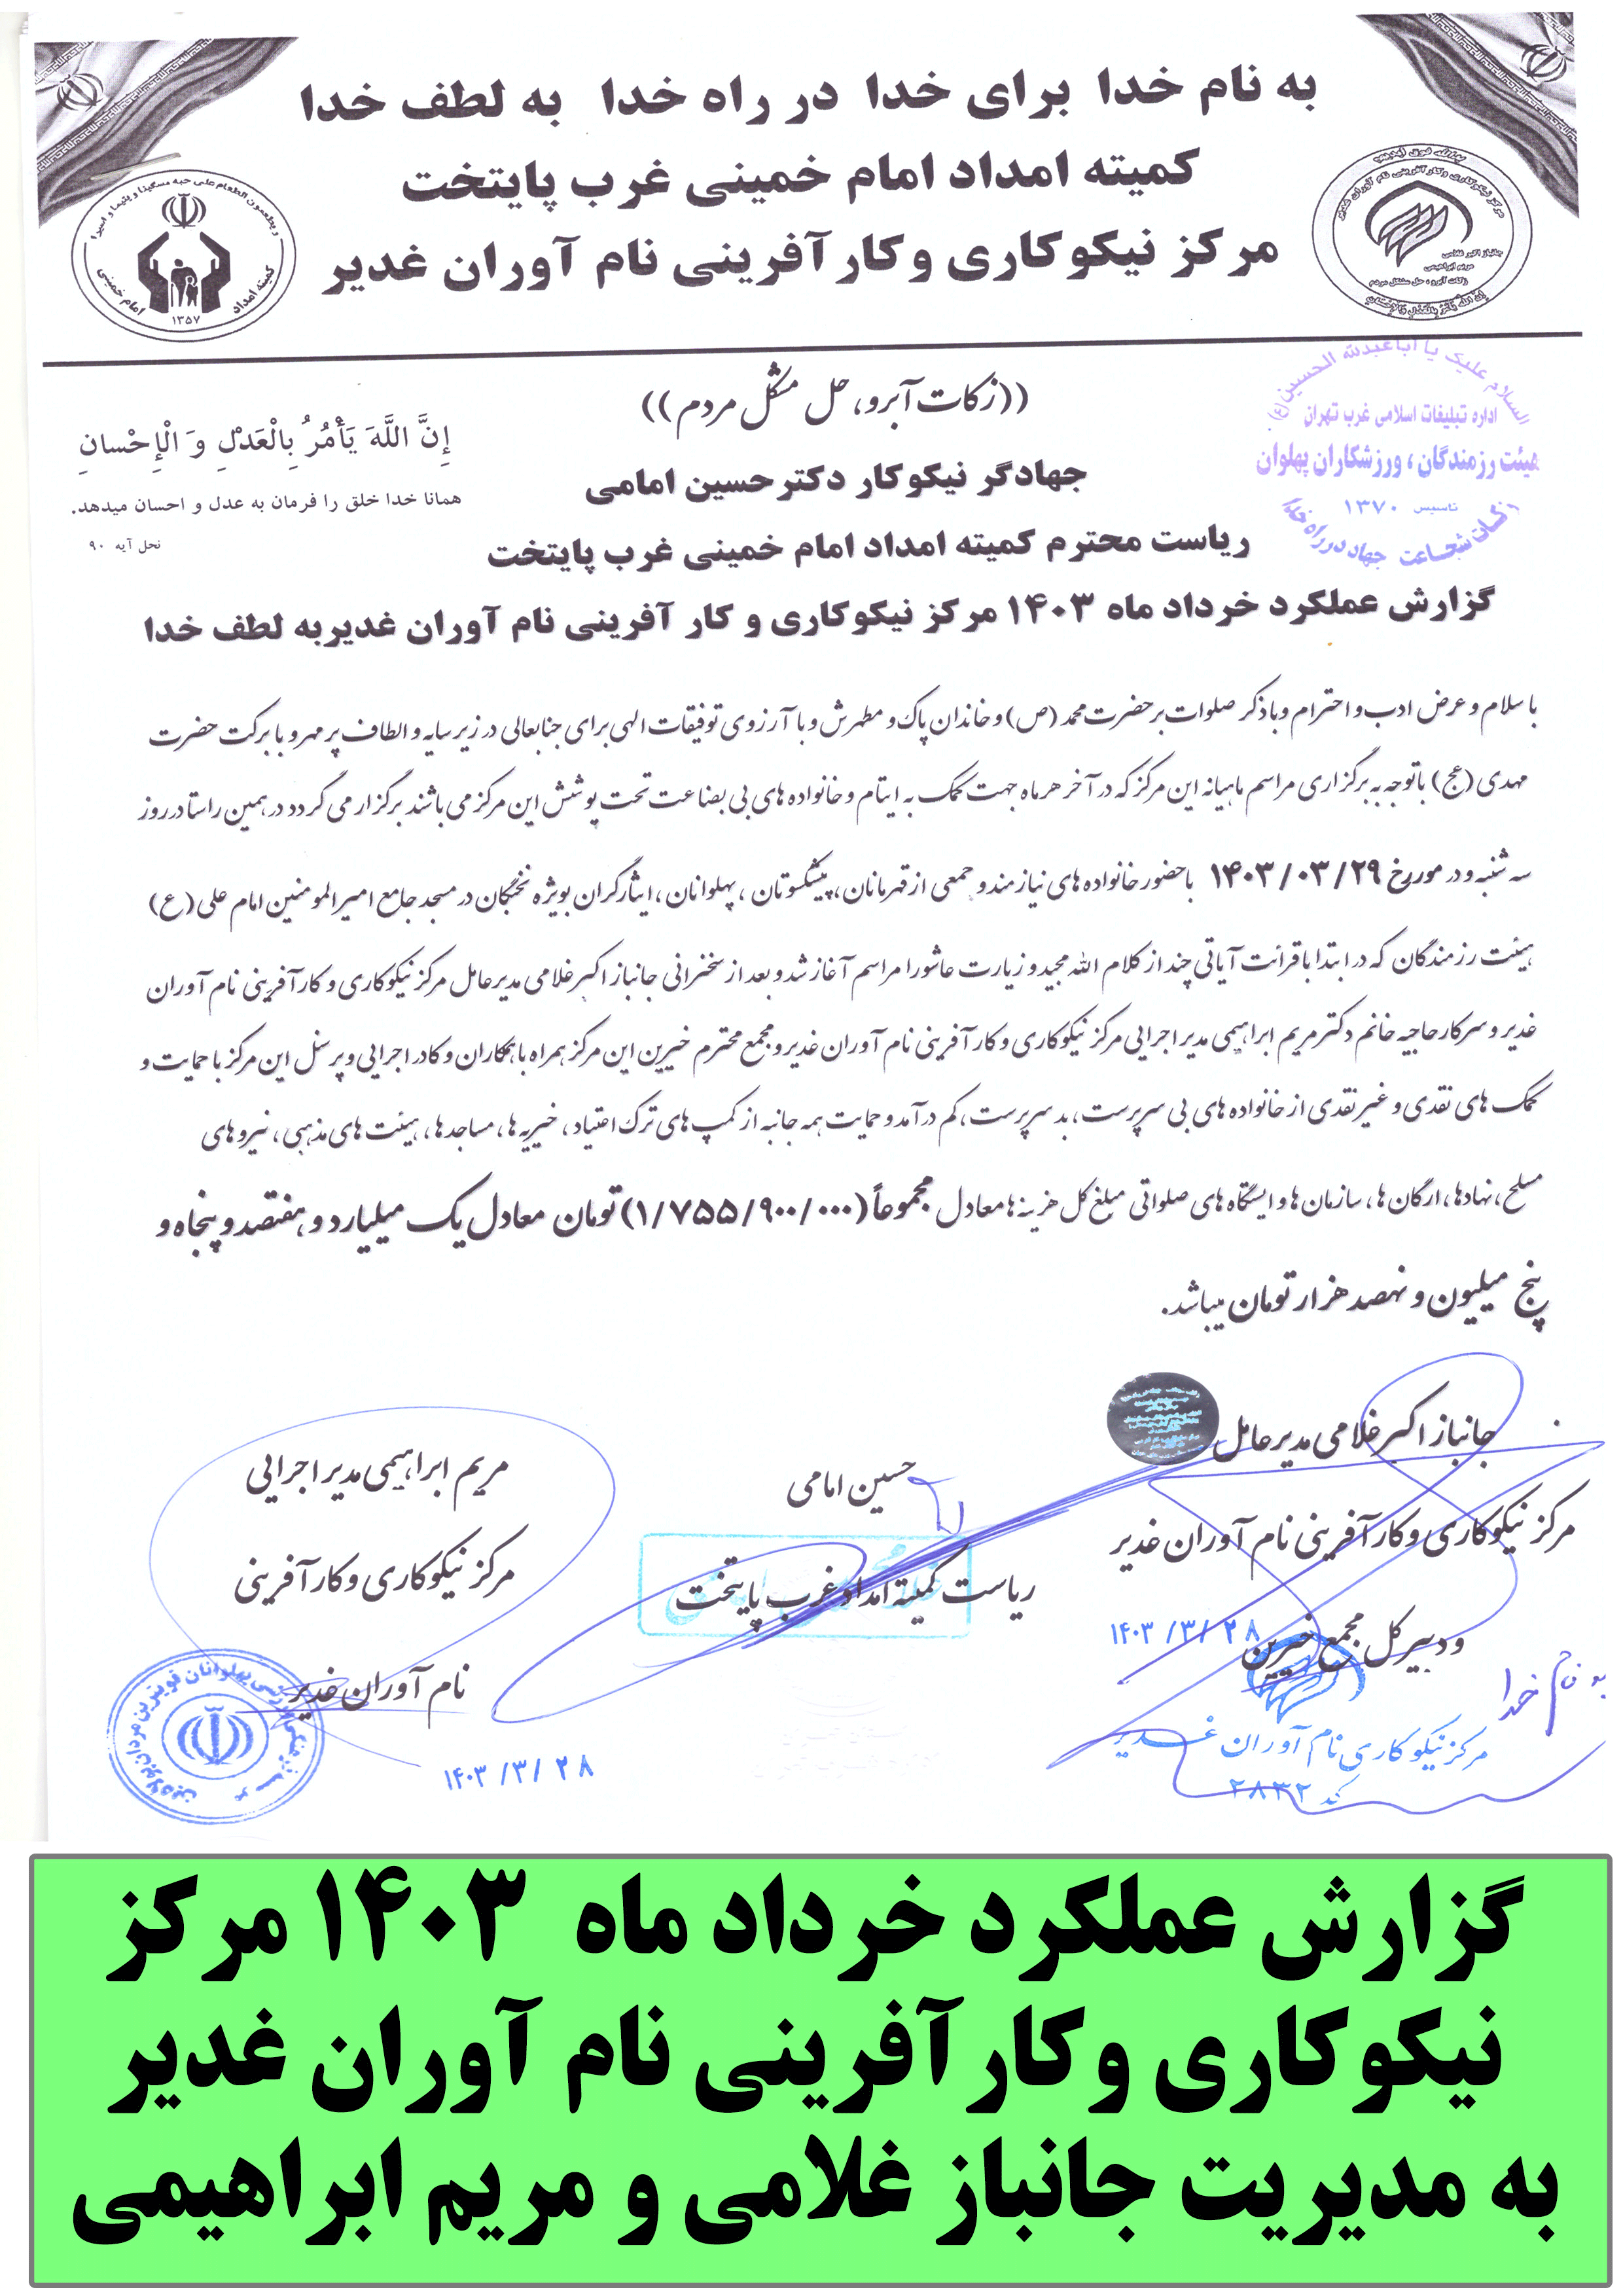 به نام خدا برای خدا در راه خدا به لطف خدا
کمیته امداد امام خمینی غرب پایتخت
مرکز نیکوکاری وکارآفرینی نام آوران غدیر
و یطعمون الطعام علی حبه مسکینا و یتیما و اسیرا
کمیته امداد امام خمینی
۱۳۵۷
مرکز نیکوکاری وکارآفرینی نام آوران غدیر
جانباز اکبر غلامی
مریم ابراهیمی
زکات آبرو، حل مشکل مردم
السلام علیک یا اباعبدلله الحسین (ع)
اداره تبلیغات اسلامی غرب تهران
هیئت رزمندگان ، ورزشکاران پهلوان
تاسیس ۱۳۷۰
شجاعت جهاد در راه خدا
((زکات آبرو، حل مشکل مردم))
إِنَّ اللَّهَ یَأْمُرُ بِالْعَدْلِ وَ الْإِحْسانِ
همانا خدا خلق را فرمان به عدل و احسان میدهد.
نحل آیه ۹۰
جهادگر نیکوکار دکترحسین امامی
ریاست محترم کمیته امداد امام خمینی غرب پایتخت
گزارش عملکرد خرداد ماه ۱۴۰۳ مرکز نیکوکاری و کار آفرینی نام آوران غدیربه لطف خدا
با سلام و عرض ادب و احترام و باذکر صلوات بر حضرت محمد (ص) و خاندان پاک و مطهرش و با آرزوی توفیقات الهی برای جنابعالی در زیر سایه و الطاف پر مهر و با برکت حضرت
مهدی (عج) باتوجه به برگزاری مراسم ماهیانه این مرکز که در آخر هر ماه جهت کمک به ایتام و خانواده های بی بضاعت تحت پوشش این مرکز می باشند برگزار می گردد در همین راستا در روز
سه شنبه و در مورخ ۱۴۰۳/۰۳/۲۹ با حضور خانواده های نیازمند و جمعی از قهرمانان، پیشکسوتان ، پهلوانان ، ایثارگران بویژه نخبگان در مسجد جامع امیرالمومنین امام علی (ع)
هیئت رزمندگان که در ابتدا با قرائت آیاتی چند از کلام الله مجید و زیارت عاشورا مراسم آغاز شد و بعد از سخنرانی جانباز اکبر غلامی مدیرعامل مرکز نیکوکاری و کارآفرینی نام آوران
غدیر و سرکار حاجیه خانم دکتر مریم ابراهیمی مدیر اجرایی مرکز نیکوکاری و کارآفرینی نام آوران غدیر و مجمع محترم خیرین این مرکز همراه با همکاران و کادر اجرایی و پرسنل این مرکز با حمایت و
کمک های نقدی و غیر نقدی از خانواده های بی سرپرست، بد سرپرست، کم درآمد و حمایت همه جانبه از کمپ های ترک اعتیاد ، خیریه ها، مساجدها، هیئت های مذهبی ، نیروهای
مسلح، نهادها، ارگان ها، سازمان ها و ایستگاه های صلواتی مبلغ کل هزینه ها معادل مجموعاً (۱/۷۵۵/۹۰۰/۰۰۰) تومان معادل یک میلیارد و هفتصد و پنجاه و
پنج میلیون و نهصد هزار تومان میباشد.
جانباز اکبر غلامی مدیرعامل
مرکز نیکوکاری وکارآفرینی نام آوران غدیر
و دبیر کل مجمع خیرین
۱۴۰۳/۳/۲۸
به نام خدا
مرکز نیکوکاری نام آوران غدیر
کد ۲۸۳۲
حسین امامی
ریاست کمیته امداد غرب پایتخت
مریم ابراهیمی مدیر اجرایی
مرکز نیکوکاری وکارآفرینی
نام آوران غدیر
۱۴۰۳/۳/۲۸
گزارش عملکرد خرداد ماه ۱۴۰۳ مرکز
نیکوکاری وکارآفرینی نام آوران غدیر
به مدیریت جانباز غلامی و مریم ابراهیمی